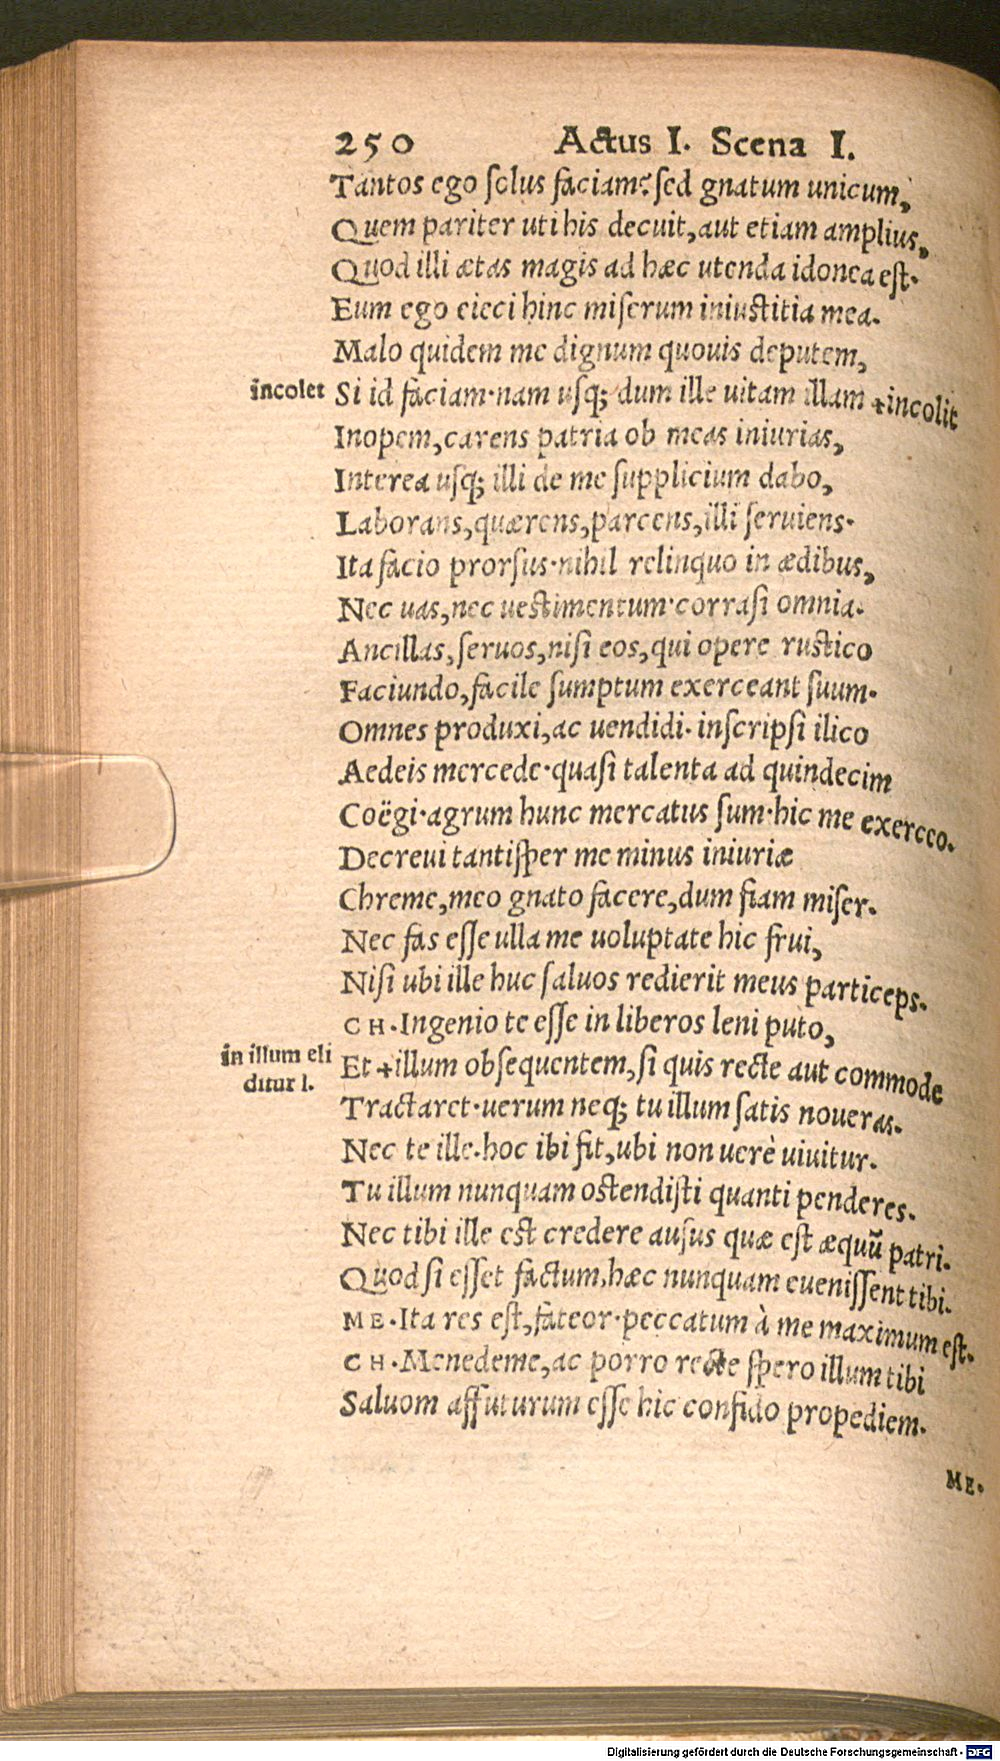 250 Actus I. Scena I.
Tantos ego solus faciam? sed gnatum unicum,
Quem pariter uti his decuit, aut etiam amplius,
Quod illi ætas magis ad hæc utenda idonea est.
Eum ego eieci hinc miserum iniustitia mea.
Malo quidem me dignum quouis deputem,
incolet
Si id faciam·nam usq; dum ille uitam illam +incolit
Inopem, carens patria ob meas iniurias,
Interea usq; illi de me supplicium dabo,
Laborans, quærens, parcens, illi seruiens·
Ita facio prorsus·nihil relinquo in ædibus,
Nec uas, nec uestimentum·corrasi omnia.
Ancillas, seruos, nisi eos, qui opere rustico
Faciundo, facile sumptum exerceant suum.
Omnes produxi, ac uendidi. inscripsi ilico
Aedeis mercede·quasi talenta ad quindecim
Coëgi·agrum hunc mercatus sum·hic me exerceo.
Decreui tantisper me minus iniuriæ
Chreme, meo gnato facere, dum fiam miser.
Nec fas esse ulla me uoluptate hic frui,
Nisi ubi ille huc saluos redierit meus particeps.
CH. Ingenio te esse in liberos leni puto,
in illum eli
ditur l.
Et +illum obsequentem, si quis recte aut commode
Tractaret·uerum neq; tu illum satis noueras.
Nec te ille.hoc ibi fit, ubi non uerè uiuitur.
Tu illum nunquam ostendisti quanti penderes.
Nec tibi ille est credere ausus quæ est æquũ patri.
Quod si esset factum, hæc nunquam euenissent tibi.
ME. Ita res est, fateor·peccatum à me maximum est.
CH. Menedeme, ac porro recte spero illum tibi
Saluom affuturum esse hic confido propediem.
ME.
Digitalisierung gefördert durch die Deutsche Forschungsgemeinschaft - DFG